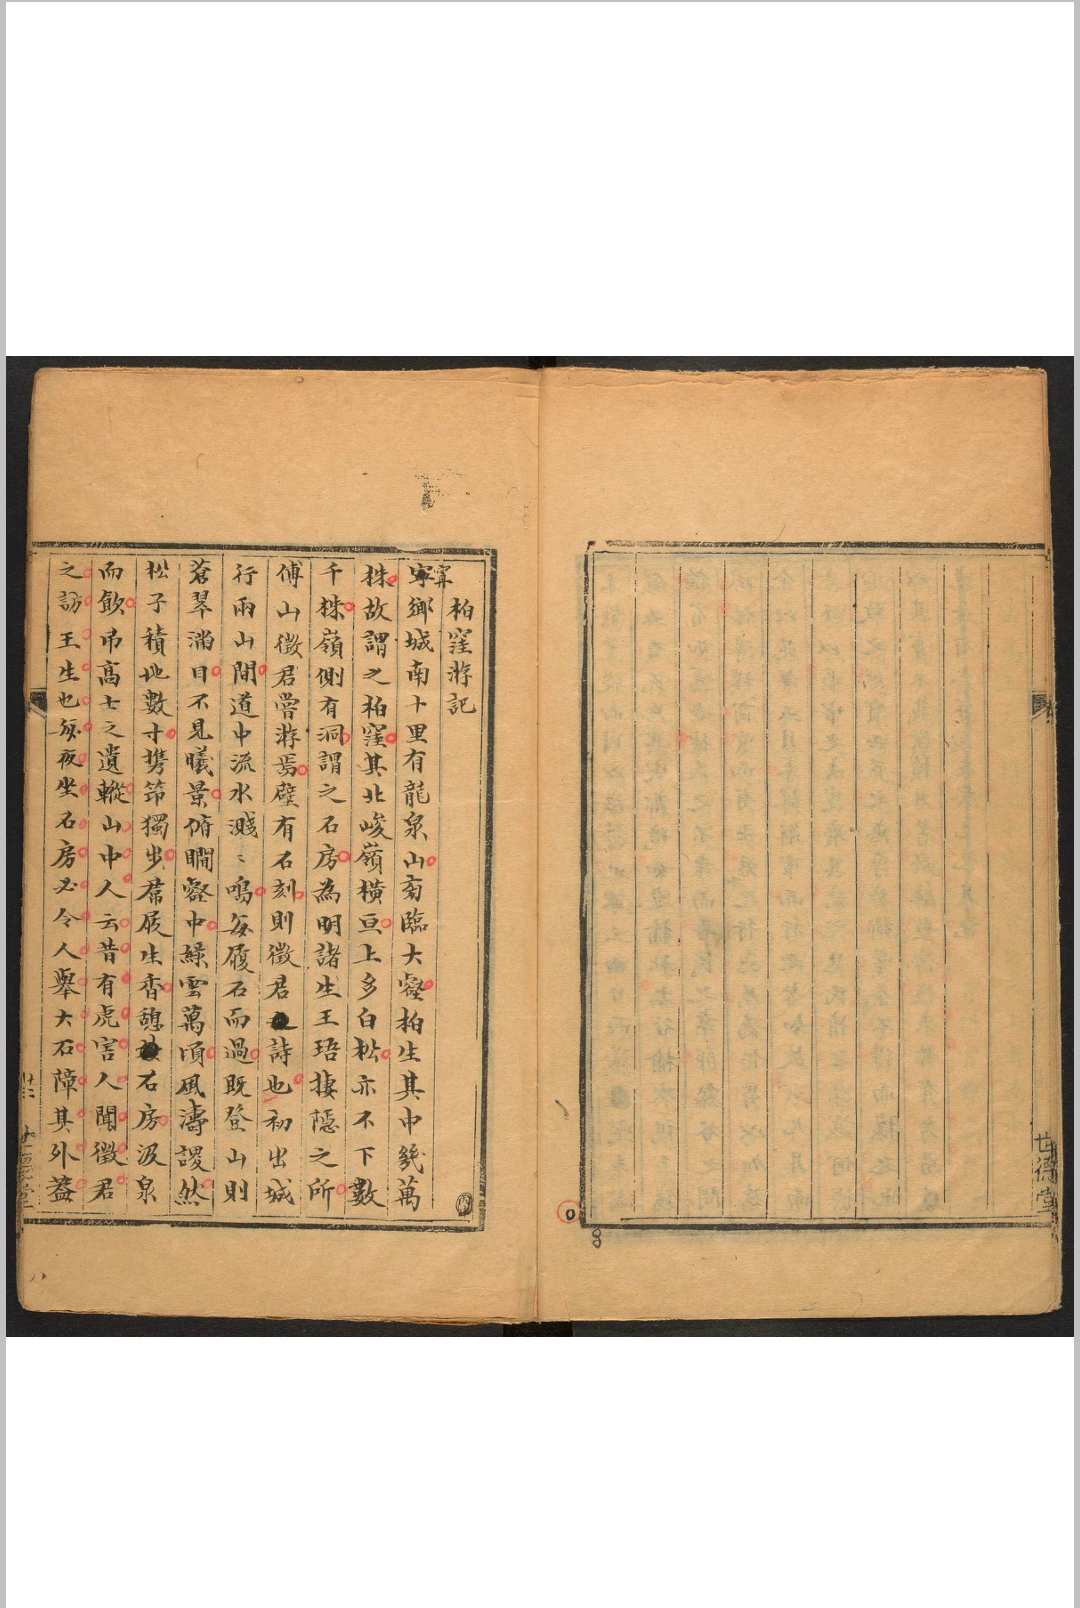 世德堂
柏窪游記
寧鄉城南十里有龍泉山旁臨大壑柏生其中幾萬
株故謂之柏窪其北峻嶺橫亘上多白松亦不下數
千株嶺側有洞謂之石房為明諸生王珸棲隱之所
傅山徵君嘗游焉壁有石刻則徵君詩也初出城
行兩山間道中流水濺〻鳴每履石而過既登山則
蒼翠滿目不見曦景俯瞷壑中綠雲萬頃風濤謖然
松子積地數寸携筇獨步席屐生香憩石房汲泉
而飲弔高士之遺蹤山中人云昔有虎害人聞徵君
之訪王生也每夜坐石房必令人舉大石障其外蓋